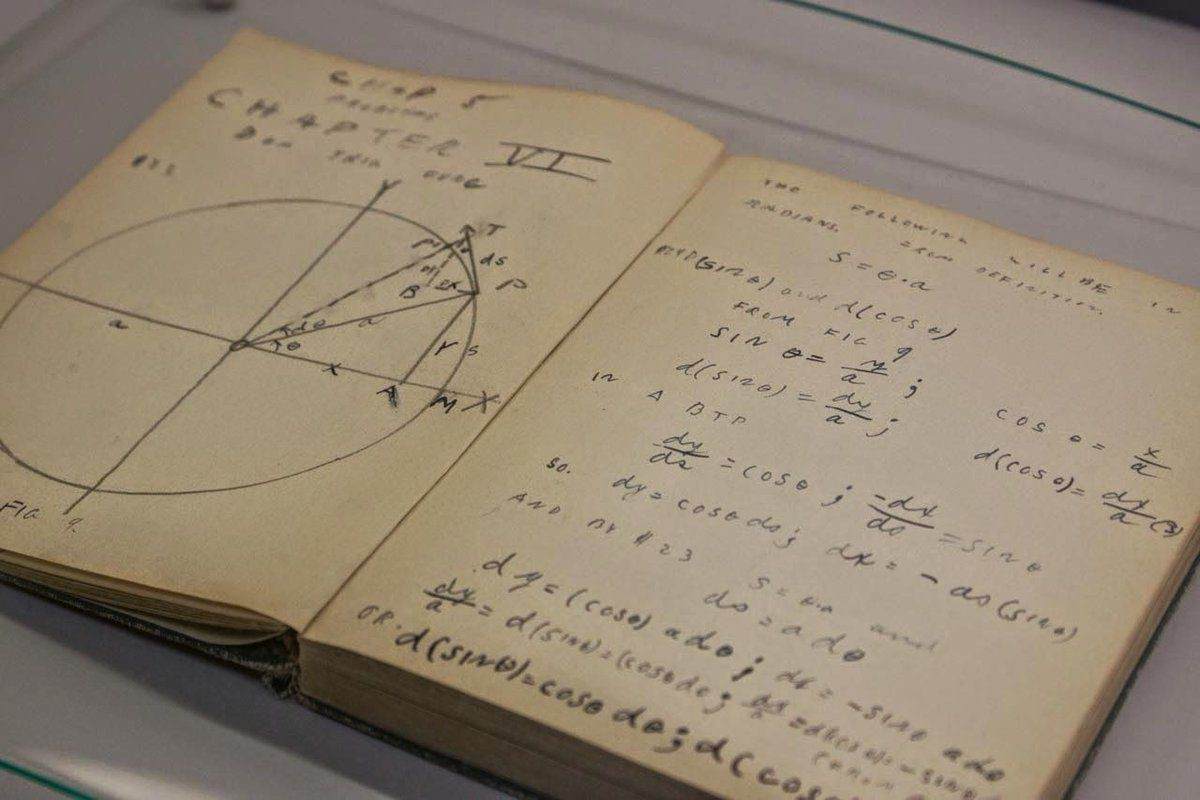 CHAP 5
CHAPTER VI
#22
Y
T
ds
P
B
dθ
a
a
θ
Y
S
X
A
M
X
FIG 9.
THE FOLLOWING WILL BE IN
RADIANS. FROM DEFINITION.
S = θ·a
FIND d(SINθ) and d(COSθ)
FROM FIG 9
SIN θ = y/a ; COS θ = x/a
d(SINθ) = dy/a ; d(COSθ) = dx/a (3)
IN Δ BTP
dy/ds = COSθ ; -dx/ds = SINθ
SO. dy = COSθ ds ; dx = - ds (SINθ)
AND BY #23 S = θ·a and
ds = a dθ
dy = (COSθ) a dθ ; dx = - SINθ a dθ
dy/a = d(SINθ) = (COSθ) dθ ; dx/a = d(COSθ) = - SINθ
OR. d(SINθ) = COSθ dθ ; d(COS